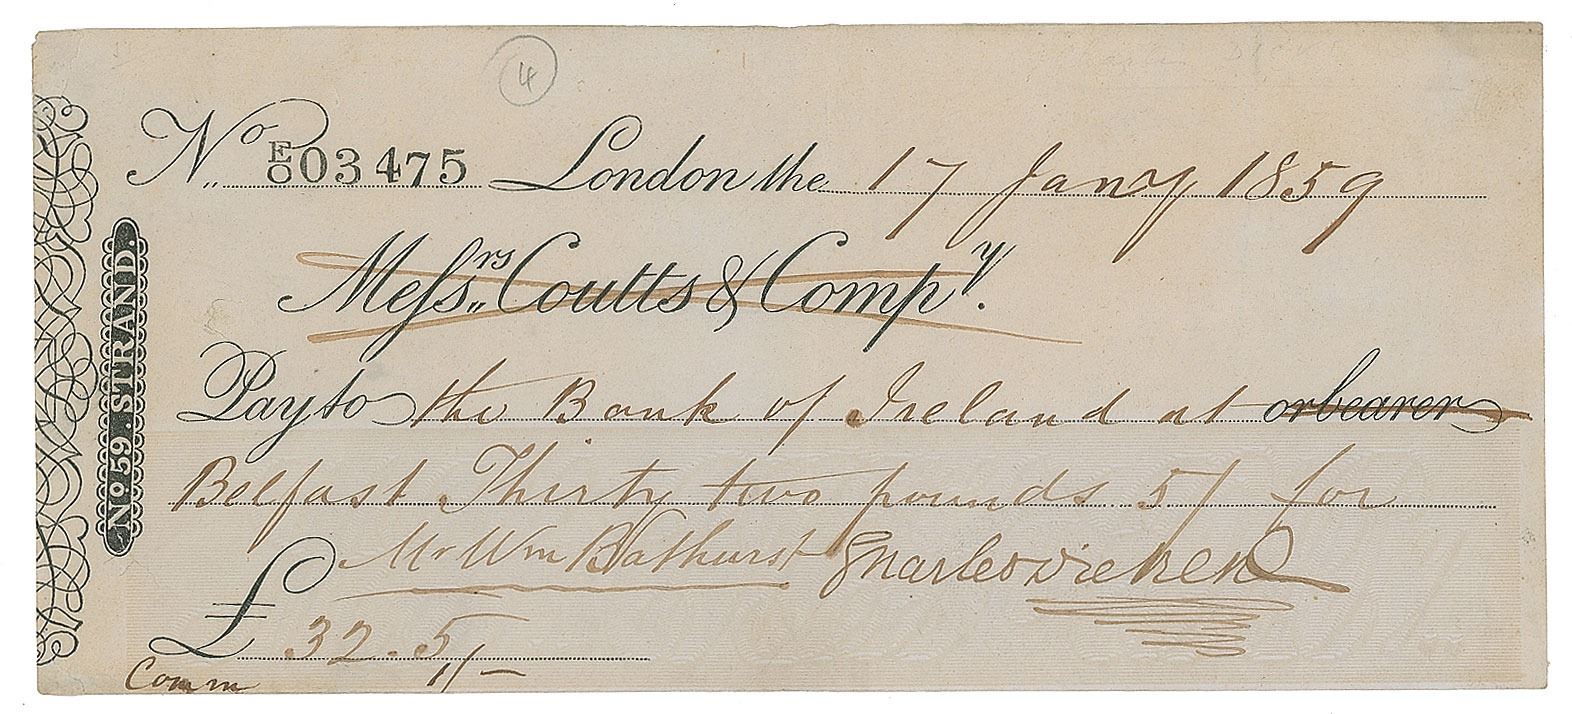 4
No. E/O 03475 London the 17 Jany 1859
No 59. STRAND.
Messrs Coutts & Compy.
Pay to the Bank of Ireland at or bearer
Belfast Thirty two pounds 5/ for
Mr Wm Bathurst Charles Dickens
£ 32.5/-
Comm 1/-